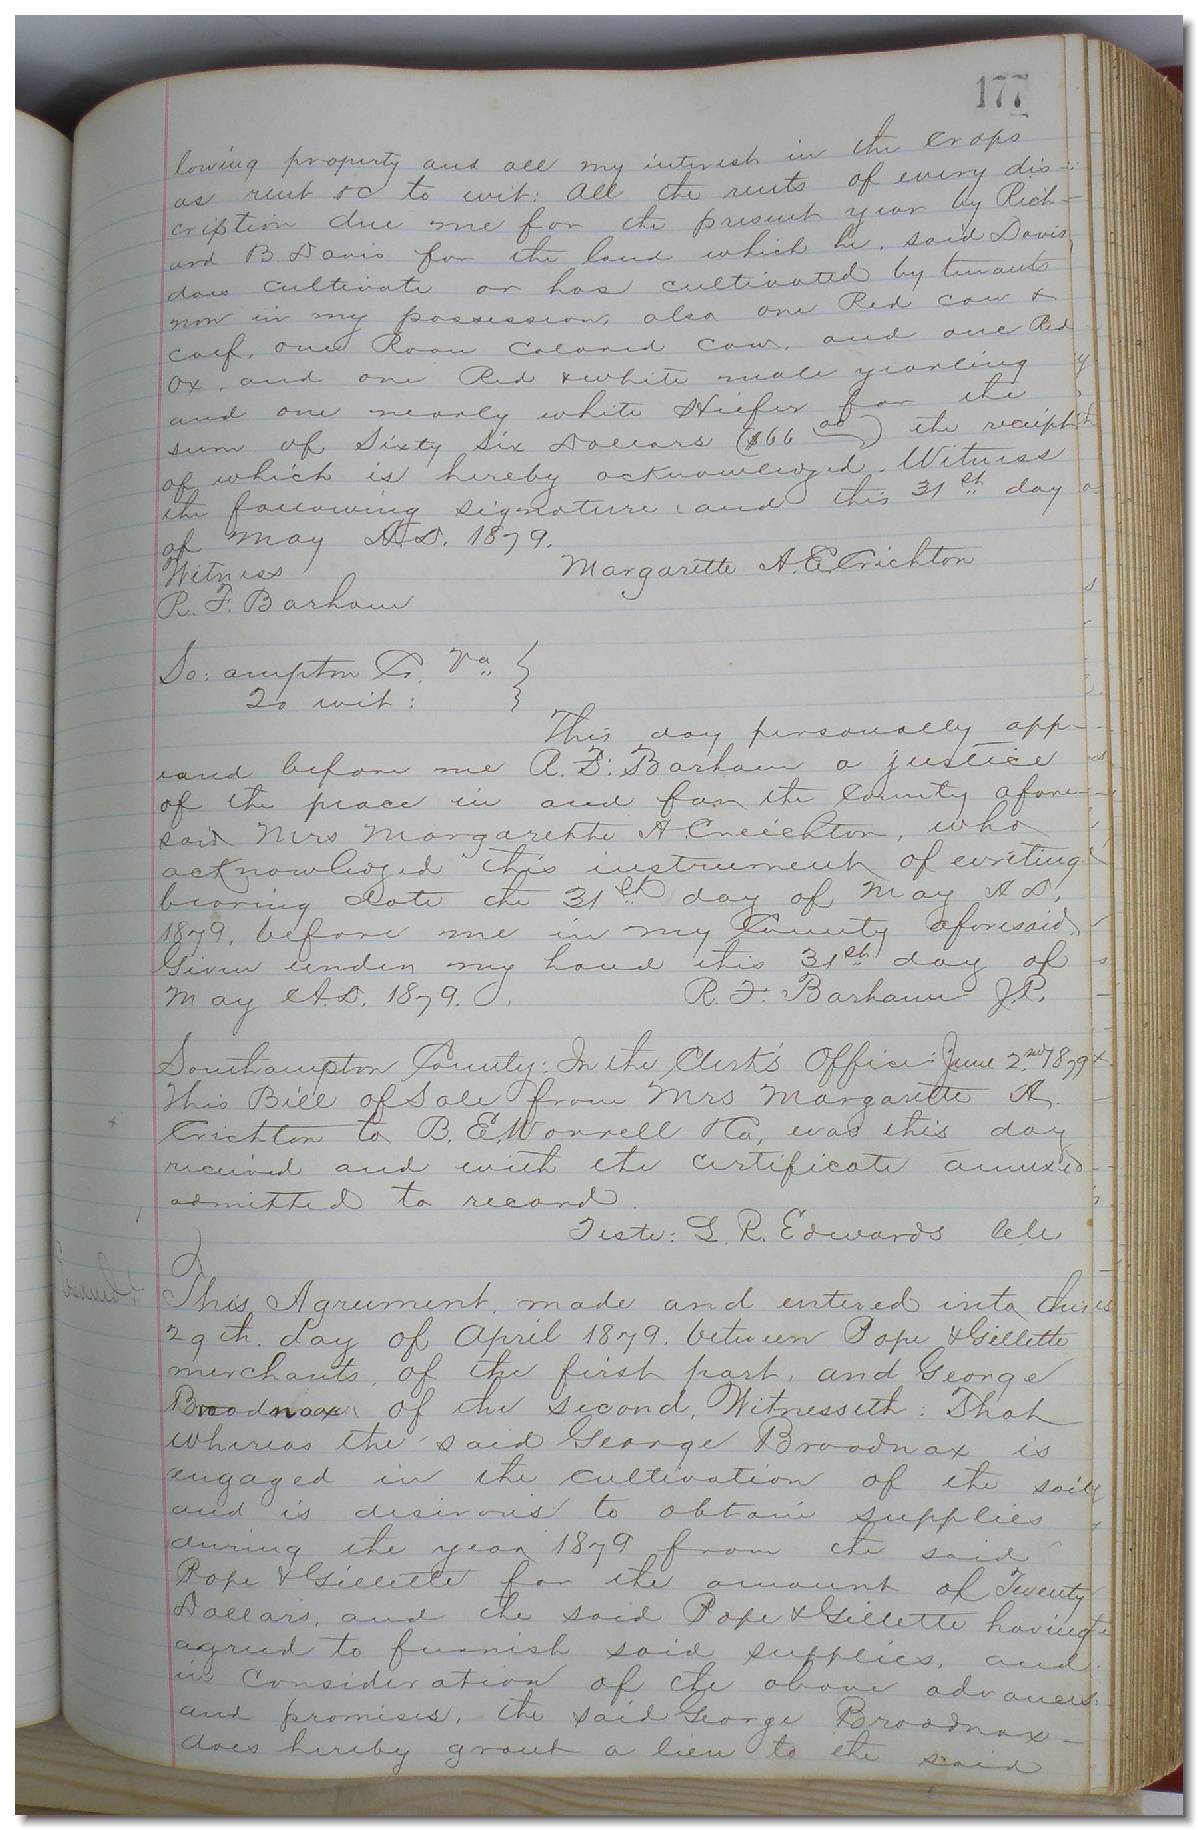 177
lowing property and all my interest in the crops
as rent &c to wit: All the rents of every dis-
cription due me for the present year by Rich-
ard B Davis for the land which he, said Davis
does cultivate or has cultivated by tenants
now in my possession, also one Red cow &
calf, one Roan Colored Cow, and one Red
Ox, and one Red & white male yearling
and one nearly white Hiefer for the
sum of Sixty Six Dollars ($66 00) the receipt
of which is hereby acknowledged. Witness
the following signature and this 31st day
of May A.D. 1879.
Witness Margarette A. E. Crichton
R. F. Barham
So: ampton Co. Va
To wit:
This day personally app-
eard before me R. F. Barham a justice
of the peace in and for the County afore-
said Mrs Margarette A. Creichton, who
acknowledged this instrument of writing
bearing date the 31st day of May A D,
1879, before me in my County aforesaid.
Given under my hand this 31st day of
May A.D. 1879. R. F. Barham J.P.
Southampton County: In the Clerk's Office June 2nd 1879
This Bill of Sale from Mrs Margarette A.
Crichton to B. E. Worrell & Co, was this day
received and with the certificate annexed
admitted to record.
Teste: L. R. Edwards Clk
This Agreement, made and entered into this
29th. day of April 1879. between Pope & Gillette
merchants, of the first part, and George
Broadnax of the second, Witnesseth: That
whereas the said George Broadnax is
engaged in the cultivation of the soil
and is desirous to obtain supplies
during the year 1879 from the said
Pope & Gillette for the amount of Twenty
Dollars, and the said Pope & Gillette having
agreed to furnish said supplies, and
in consideration of the above advances
and promises, the said George Broadnax
does hereby grant a lien to the said